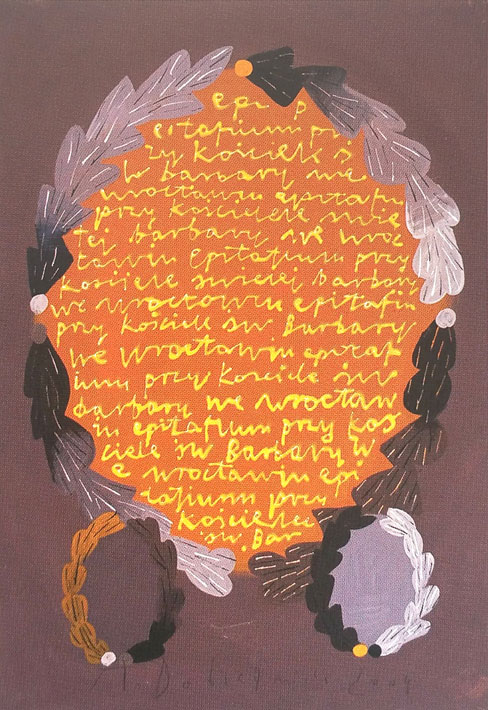 epi p
epitafium pr
zy kościele ś
w Barbary we
wrocławiu epitafiu
przy kościele świę
tej barbary we wroc
ławiu epitafium przy
kościele świętej barbary
we wrocławiu epitafiu
przy kościele św Barbary
we wrocławiu epitaf
ium przy kościele św
barbary we wrocław
iu epitafium przy koś
ciele św Barbary w
e wrocławiu epi
tafium przy
kościele
św. Bar